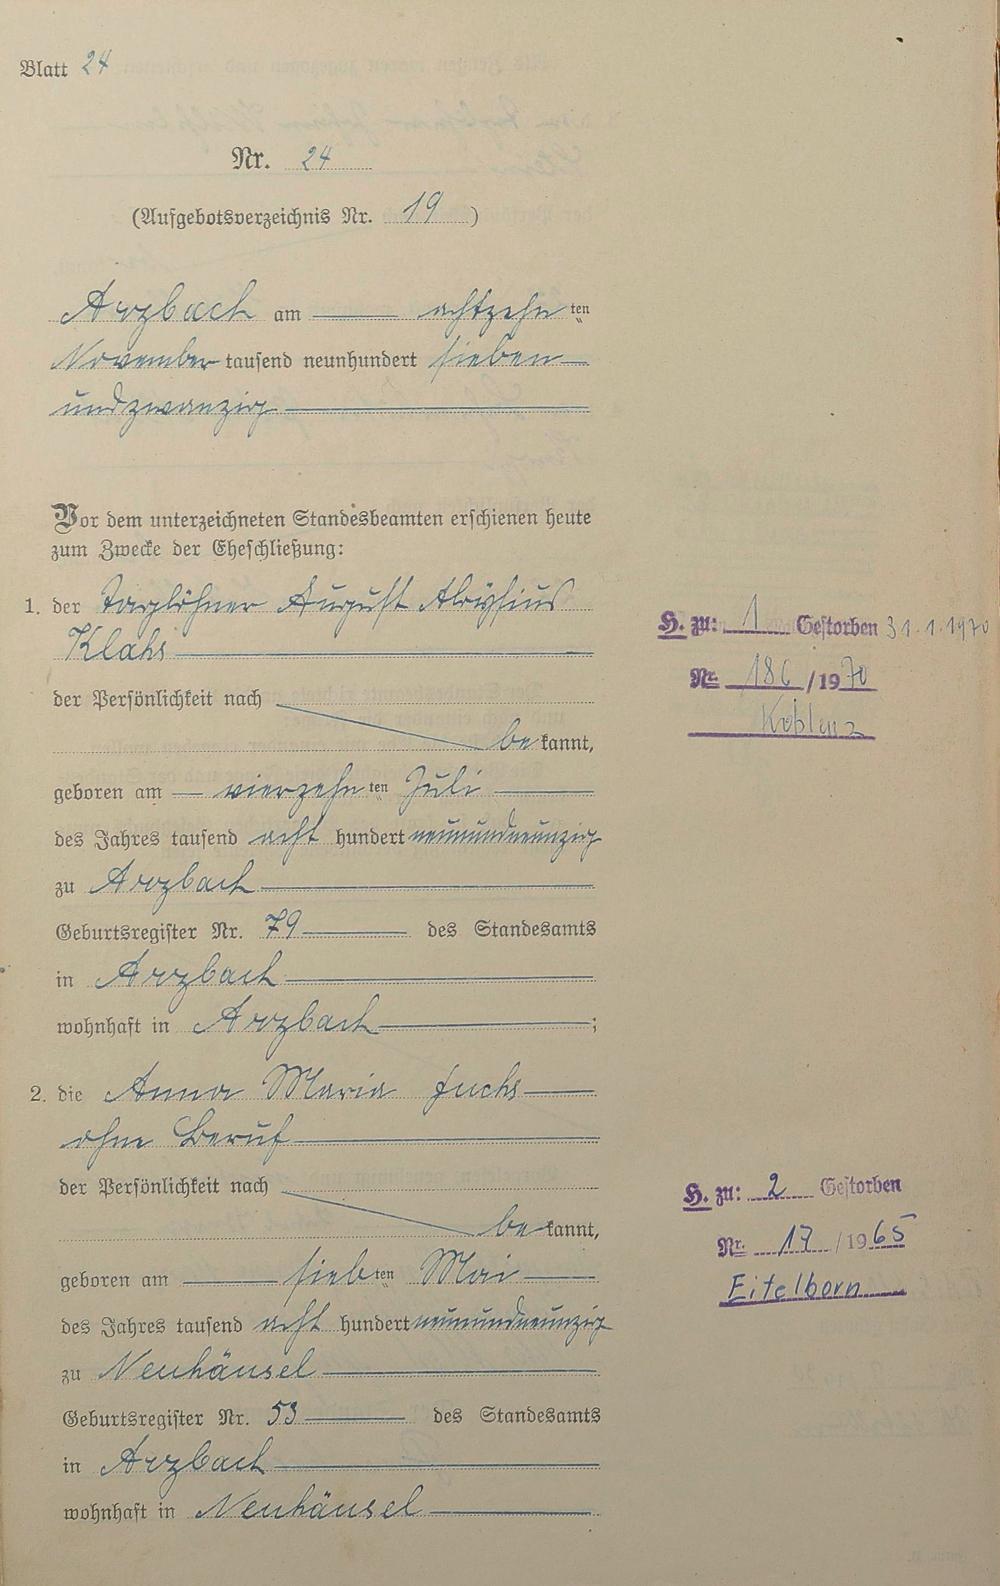 Blatt 24
Nr. 24
(Aufgebotsverzeichnis Nr. 19)
Arzbach am achtzehnten
November tausend neunhundert sieben
undzwanzig
Vor dem unterzeichneten Standesbeamten erschienen heute
zum Zwecke der Eheschließung:
1. der Taglöhner August Aloysius
Klahs
der Persönlichkeit nach
bekannt,
geboren am vierzehnten Juli
des Jahres tausend acht hundert neunundneunzig
zu Arzbach
Geburtsregister Nr. 79 des Standesamts
in Arzbach
wohnhaft in Arzbach;
2. die Anna Maria Fuchs
ohne Beruf
der Persönlichkeit nach
bekannt,
geboren am siebten Mai
des Jahres tausend acht hundert neunundneunzig
zu Neuhäusel
Geburtsregister Nr. 53 des Standesamts
in Arzbach
wohnhaft in Neuhäusel
H. zu: 1 Gestorben 31.1.1970
Nr. 186/1970
Koblenz
H. zu: 2 Gestorben
Nr. 17/1965
Eitelborn